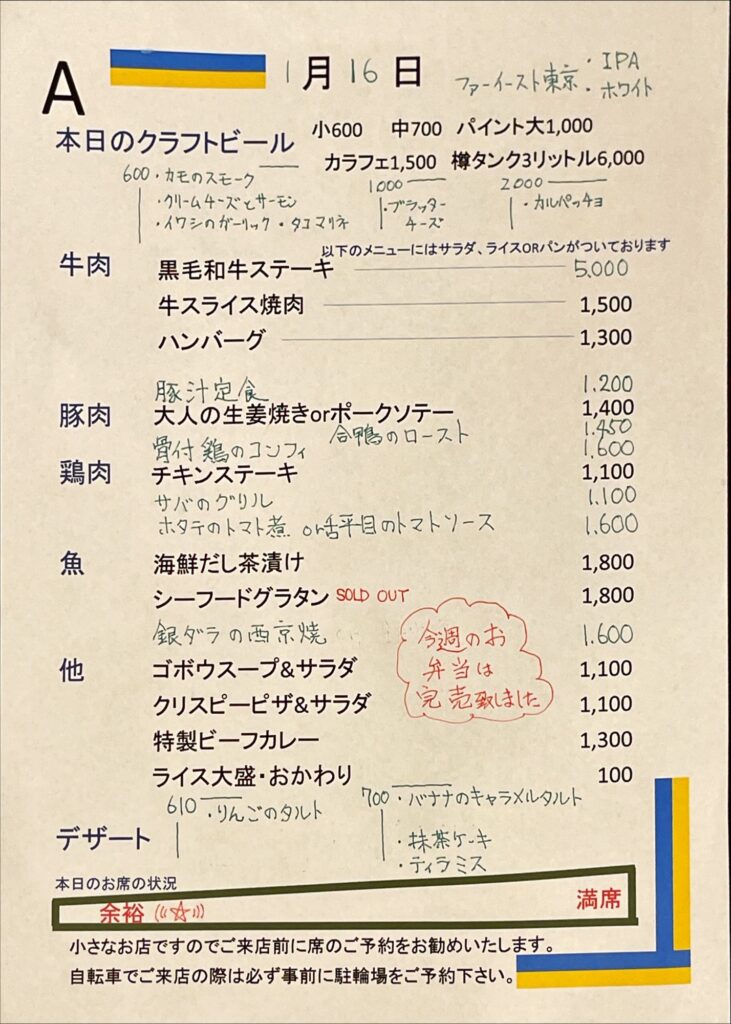 A
1月16日
ファーイースト東京・IPA
・ホワイト
本日のクラフトビール 小600 中700 パイント大1,000
カラフェ1,500 樽タンク3リットル6,000
600・カモのスモーク
・クリームチーズとサーモン
・イワシのガーリック・タコマリネ
1000
・ブラッターチーズ
2000
・カルパッチョ
以下のメニューにはサラダ、ライスORパンがついております
牛肉 黒毛和牛ステーキ 5,000
牛スライス焼肉 1,500
ハンバーグ 1,300
豚汁定食 1.200
豚肉 大人の生姜焼きorポークソテー 1,400
合鴨のロースト 1.450
骨付鶏のコンフィ 1.600
鶏肉 チキンステーキ 1,100
サバのグリル 1.100
ホタテのトマト煮 or舌平目のトマトソース 1.600
魚 海鮮だし茶漬け 1,800
シーフードグラタン SOLD OUT 1,800
銀ダラの西京焼 1.600
今週のお
弁当は
完売致しました
他 ゴボウスープ&サラダ 1,100
クリスピーピザ&サラダ 1,100
特製ビーフカレー 1,300
ライス大盛・おかわり 100
デザート
610・りんごのタルト
700・バナナのキャラメルタルト
・抹茶ケーキ
・ティラミス
本日のお席の状況
余裕 ((☆)) 満席
小さなお店ですのでご来店前に席のご予約をお勧めいたします。
自転車でご来店の際は必ず事前に駐輪場をご予約下さい。